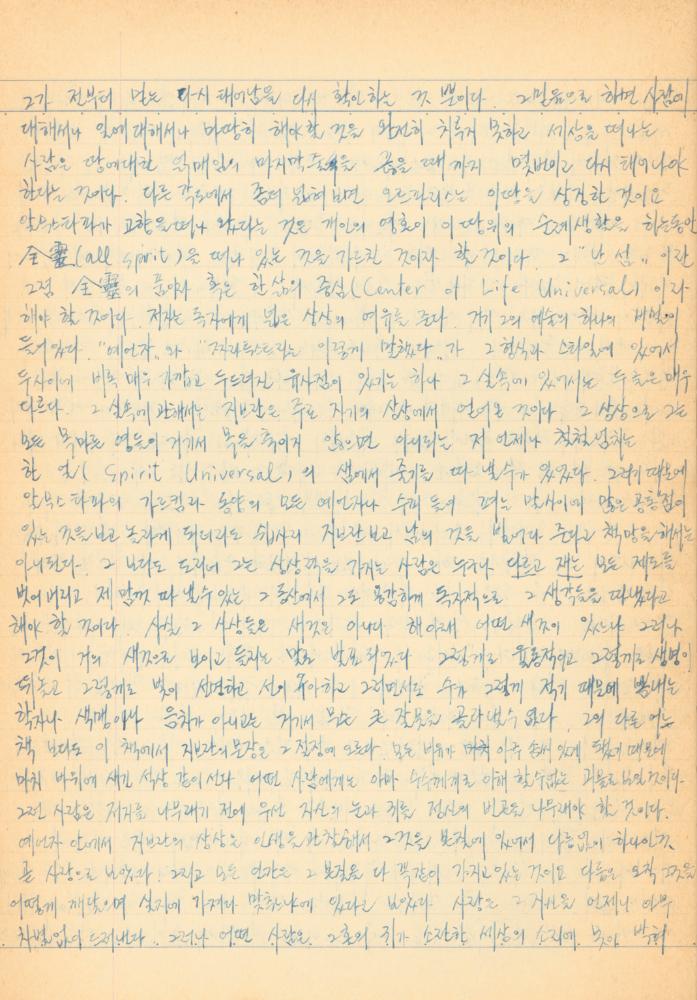 그가 전부터 믿는 다시 태어남을 다시 확인하는 것 뿐이다. 그 믿음으로 하면 사람에
대해서나 일에 대해서나 마땅히 해야 할 것을 완전히 치루지 못하고 세상을 떠나는
사람은 땅에 대한 얽매임의 마지막 줄을 끊을 때까지 몇번이고 다시 태어나야
한다는 것이다. 다른 각도에서 좀더 넓혀 보면 오르파리스는 이 땅을 상징한 것이요
알무스타파가 고향을 떠나 왔다는 것은 개인의 영혼이 이 땅위의 순례 생활을 하는 동안
全靈(all spirit)을 떠나 있는 것을 가르친 것이라 할 것이다. 그 "난 섬" 이란
그점 全靈의 품이라 혹은 한 삶의 중심(Center of Life Universal) 이라
해야 할 것이다. 저자는 독자에게 넓은 상상의 여유를 준다. 거기 그의 예술의 하나의 비밀이
들어있다. "예언자" 와 "짜라투스트라는 이렇게 말했다" 가 그 형식과 스타일에 있어서
두 사이에 비록 매우 가깝고 두드러진 유사점이 있기는 하나 그 실속에 있어서는 두 혼은 매우
다르다. 그 실속에 관해서는 지브란은 주로 자기의 상상에서 얻어온 것이다. 그 상상으로 그는
모든 목마른 영들이 거기서 목을 축이지 않으면 아니되는 저 언제나 철철 넘치는
한 얼(Spirit Universal)의 샘에서 줄기를 따 낼 수가 있었다. 그렇기 때문에
알무스타파의 가르침과 동양의 모든 예언자나 수피들의 하는 말 사이에 많은 공통점이
있는 것을 보고 놀라게 되더라도 쉽사리 지브란보고 남의 것을 빌어다 준다고 책망을 해서는
아니된다. 그 보다도 도리어 그는 상상력을 가지는 사람은 누구나 다르고 재는 모든 제도를
벗어 버리고 제 맘껏 따 낼 수 있는 그 동산에서 그도 용감하게 독자적으로 그 생각들을 따냈다고
해야 할 것이다. 사실 그 사상들은 새것은 아니다. 해 아래 어떤 새것이 있느냐 그러나
그것이 거의 새것으로 보이고 들리는 말로 발표되었다. 그렇게도 율동적이고 그렇게도 생명이
뛰놀고 그렇게도 빛이 선명하고 선이 우아하고 그러면서도 수가 그렇게 적기 때문에 뽐내는
학자나 색맹이나 음치가 아니고는 거기서 무슨 흠 잘못을 골라낼 수 없다. 그의 다른 어느
책 보다도 이 책에서 지브란의 문장은 그 절정에 오른다. 모든 비유가 아주 솜씨 있게 됐기 때문에
마치 바위에 새긴 석상 같이 선다. 어떤 사람에게는 아마 수수께끼로 이해 할 수 없는 괴물로 보일 것이다.
그런 사람은 저자를 나무래기 전에 우선 자신의 눈과 귀를 정신의 빈곤을 나무래야 할 것이다.
예언자 안에서 지브란의 상상은 인생을 관찰해서 그것을 본질에 있어서 다름없이 하나인 것,
곧 사랑으로 보았다. 그리고 모든 인간은 그 본질을 다 꼭같이 가지고 있는 것이요 다름은 오직 그것을
어떻게 깨닫으며 실지에 가져다 맞추느냐에 있다고 보았다. 사랑은 그 자신을 언제나 아무
차별 없이 드러낸다. 그러나 어떤 사람은 그 혼의 귀가 소란한 세상의 소리에 못이 박혀